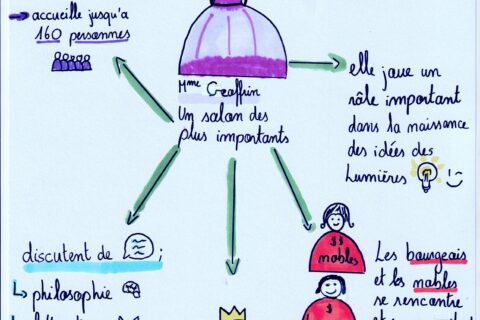 accueille jusqu'a
160 personnes
Mme Geoffrin
Un salon des
plus importants
elle joue un
rôle important
dans la naissance
des idées des
Lumières
discutent de
;
philosophie
$$
nobles
$
Les bourgeois
et les nobles
se rencontre